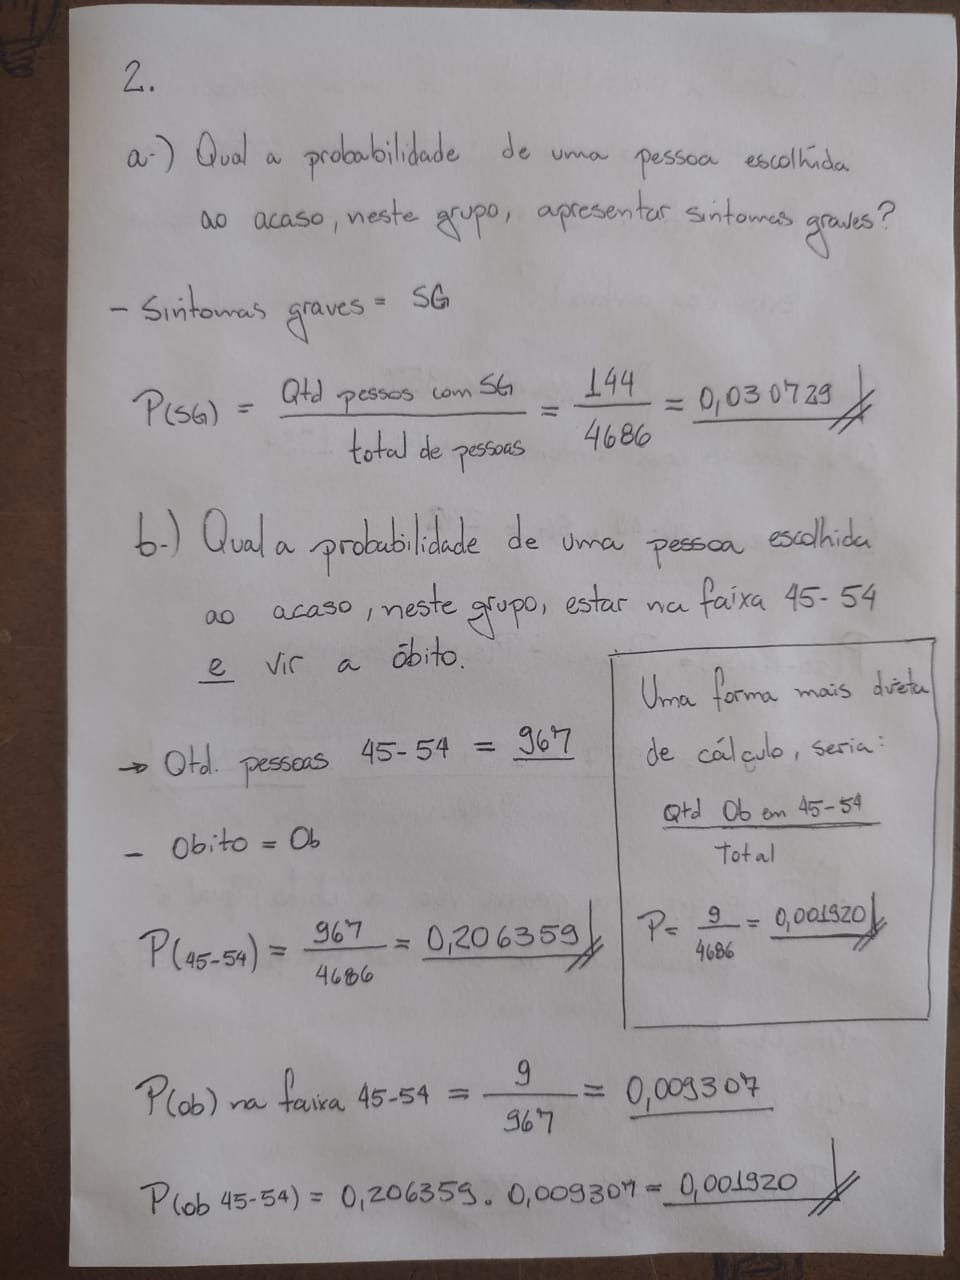 2.
a-) Qual a probabilidade de uma pessoa escolhida
ao acaso, neste grupo, apresentar sintomas graves?
- Sintomas graves = SG
P(SG) = Qtd pessos com SG / total de pessoas = 144 / 4686 = 0,030729
b-) Qual a probabilidade de uma pessoa escolhida
ao acaso, neste grupo, estar na faixa 45-54
e vir a óbito.
→ Qtd. pessoas 45-54 = 967
- Obito = Ob
P(45-54) = 967 / 4686 = 0,206359
Uma forma mais direta
de cálculo, seria:
Qtd Ob em 45-54 / Total
P = 9 / 4686 = 0,001920
P(ob) na faixa 45-54 = 9 / 967 = 0,009307
P(ob 45-54) = 0,206359 . 0,009307 = 0,001920